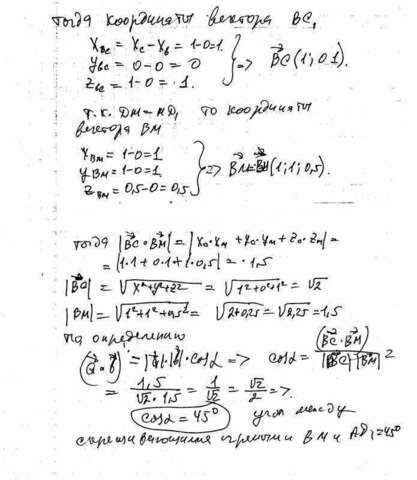 тогда координаты вектора BC₁
x_BC = x_C − x_B = 1−0=1.
y_BC = 0−0 = 0
z_BC = 1−0 = 1.
=> BC (1; 0,1).
т.к. DM = MD₁ то координаты
вектора BM
x_BM = 1−0=1
y_BM = 1−0=1
z_BM = 0,5−0=0,5
=> BM (1; 1; 0,5).
тогда |BC · BM| = |x₀·x_M + y₀·y_M + z₀·z_M| =
= |1·1 + 0·1 + 1·0,5| = 1,5
|BC| = √x²+y²+z² = √1²+0²+1² = √2
|BM| = √1²+1²+0,5² = √2+0,25 = √2,25 = 1,5
По определению
(a · b) = |a|·|b|·cosα => cosα = (BC · BM) / |BC| |BM| =
= 1,5 / √2 · 1,5 = 1/√2 = √2/2 =>
cosα = 45° угол между
скрещивающимися прямыми BM и AD₁ = 45°